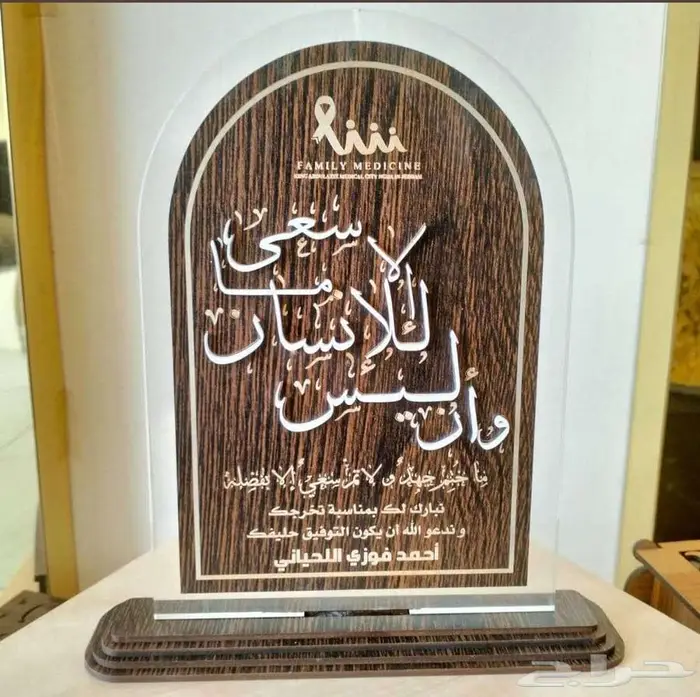 FAMILY MEDICINE
KING ABDULAZIZ MEDICAL CITY NGHA IN JEDDAH
وأن ليس للإنسان إلا ما سعى
ما ختم جهدٌ ولا تم سعيٌ إلا بفضله
نبارك لك بمناسبة تخرجك
و ندعو الله أن يكون التوفيق حليفك
أحمد فوزي اللحياني
حراج